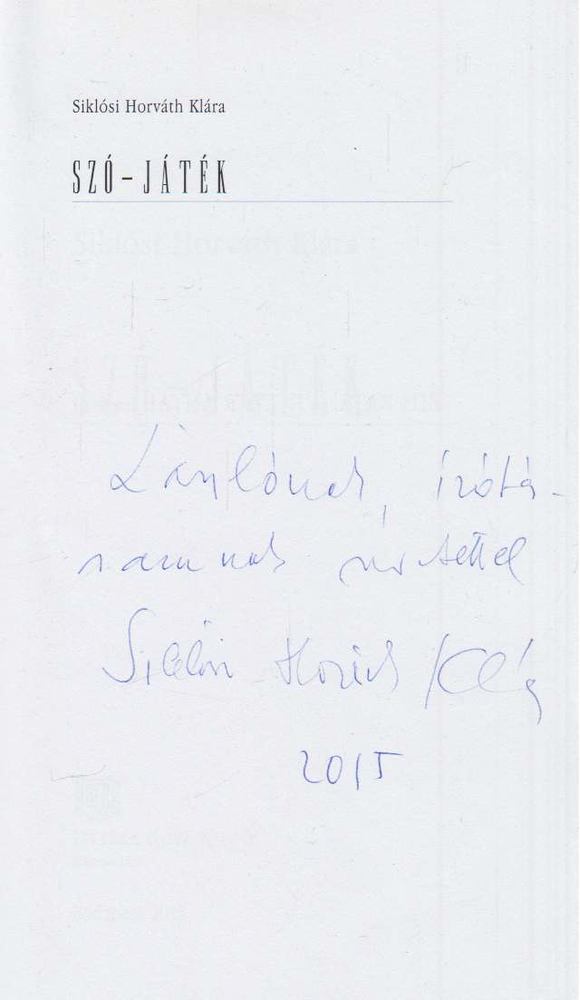 Siklósi Horváth Klára
SZÓ-JÁTÉK
Lászlónak, írótár-
samnak szeretettel
Siklósi Horváth Klára
2015